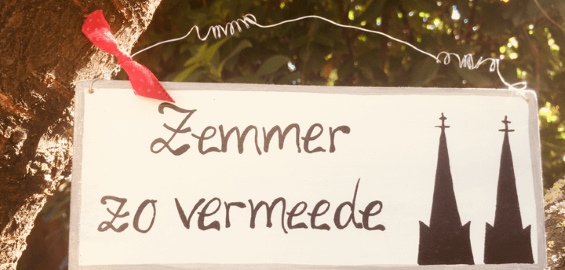 Zemmer
zo vermeede